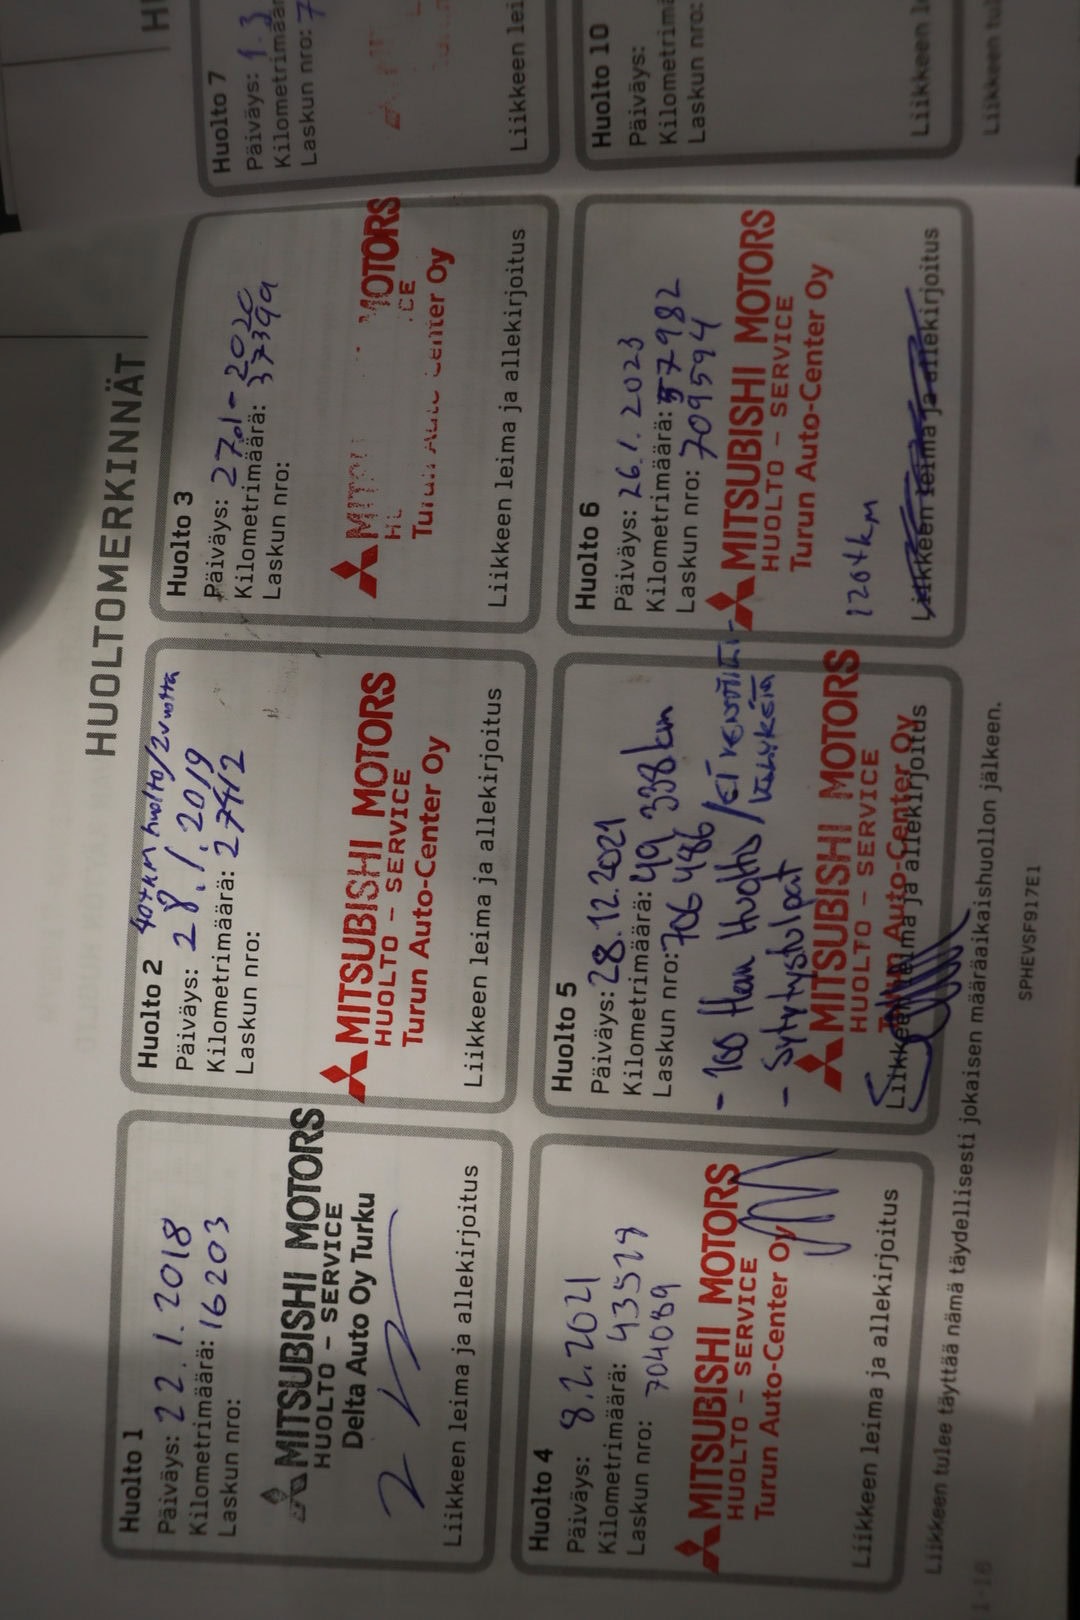 HUOLTOMERKINNÄT
Huolto 1
Päiväys: 22.1.2018
Kilometrimäärä: 16203
Laskun nro:
MITSUBISHI MOTORS
HUOLTO - SERVICE
Delta Auto Oy Turku
Liikkeen leima ja allekirjoitus
Huolto 2 40tkm huolto/2vuotta
Päiväys: 28.1.2019
Kilometrimäärä: 27412
Laskun nro:
MITSUBISHI MOTORS
HUOLTO - SERVICE
Turun Auto-Center Oy
Liikkeen leima ja allekirjoitus
Huolto 3
Päiväys: 27.01-2020
Kilometrimäärä: 37399
Laskun nro:
MITSU MOTORS
HU ICE
Turun Auto-Center Oy
Liikkeen leima ja allekirjoitus
Huolto 4
Päiväys: 8.2.2021
Kilometrimäärä: 43529
Laskun nro: 704089
MITSUBISHI MOTORS
HUOLTO - SERVICE
Turun Auto-Center Oy
Liikkeen leima ja allekirjoitus
Huolto 5
Päiväys: 28.12.2021
Kilometrimäärä: 49 338km
Laskun nro: 706486
- 100 tkm Huolto /EI
- Sytytystulpat
MITSUBISHI MOTORS
HUOLTO - SERVICE
Turun Auto-Center Oy
Liikkeen leima ja allekirjoitus
Huolto 6
Päiväys: 26.1.2023
Kilometrimäärä: 57982
Laskun nro: 709594
MITSUBISHI MOTORS
HUOLTO - SERVICE
Turun Auto-Center Oy
120tkm
Liikkeen leima ja allekirjoitus
Liikkeen tulee täyttää nämä täydellisesti jokaisen määräaikaishuollon jälkeen.
SPHEVSF917E1
1-16
Huolto 7
Päiväys: 1.3
Kilometrimäär
Laskun nro: 7
Liikkeen lei
Huolto 10
Päiväys:
Kilometrimä
Laskun nro:
Liikkeen l
Liikkeen tul